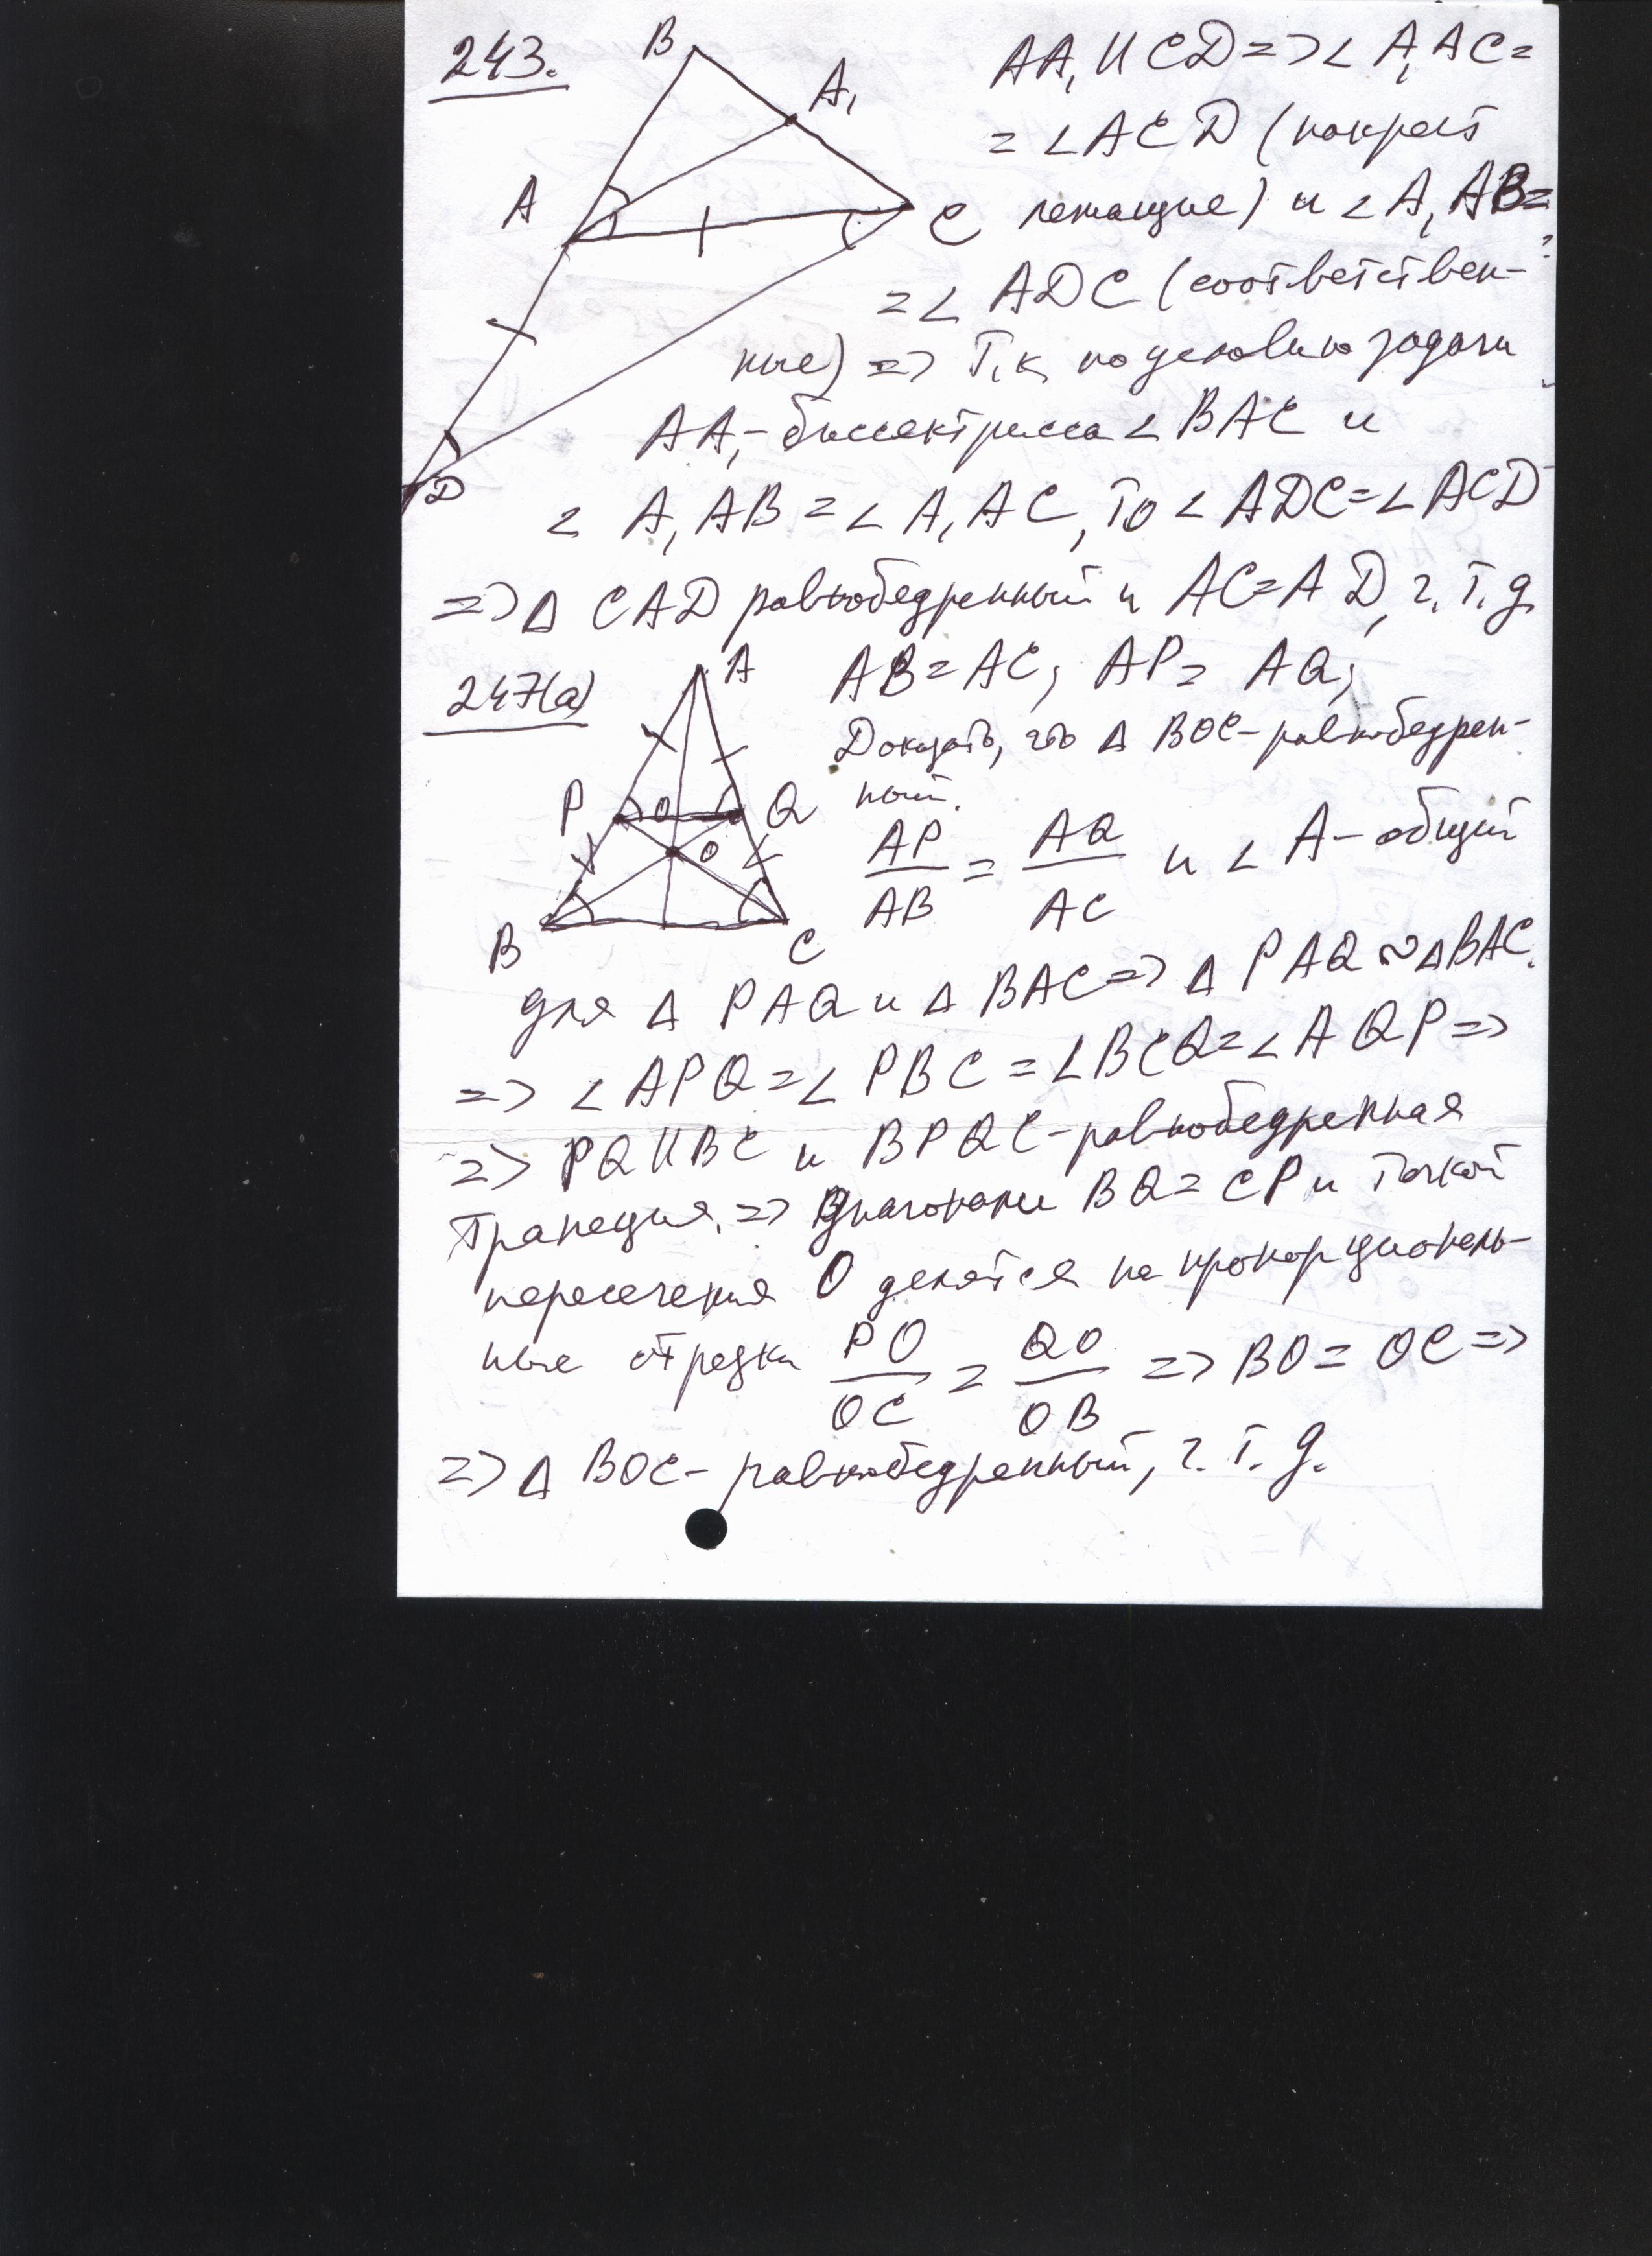 243.
B
A₁
A
C
D
AA₁ ∥ CD => ∠A₁AC =
= ∠ACD (накрест
лежащие) и ∠A₁AB =
= ∠ADC (соответствен-
ные) => Т.к. по условию задачи
AA₁ - биссектрисса ∠BAC и
∠A₁AB = ∠A₁AC, то ∠ADC = ∠ACD
=> Δ CAD равнобедренный и AC = AD, ч.т.д.
247(а)
A
P
O
Q
O
B
C
AB = AC; AP = AQ;
Доказать, что Δ BOC - равнобедрен-
ный.
AP/AB = AQ/AC и ∠A - общий
для Δ PAQ и Δ BAC => Δ PAQ ∾ Δ BAC.
=> ∠APQ = ∠PBC = ∠BCQ = ∠AQP =>
=> PQ ∥ BC и BPQC - равнобедренная
трапеция. => Диагонали BQ = CP и точкой
пересечения O делятся на пропорциональ-
ные отрезки PO/OC = QO/OB => BO = OC =>
=> Δ BOC - равнобедренный, ч.т.д.